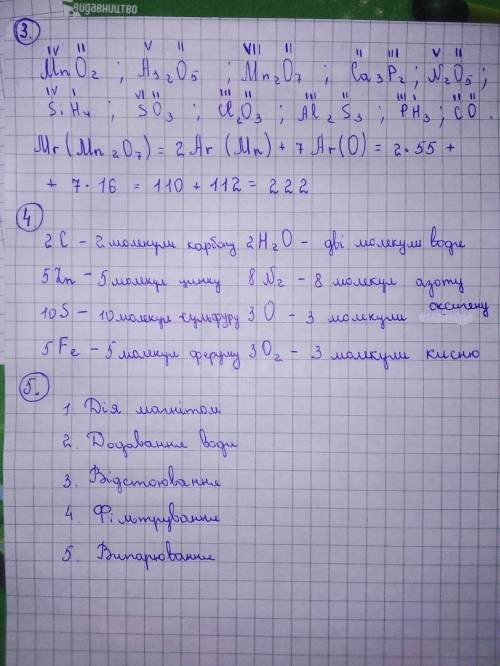 видавництво
3.
IV II V II VII II II III V II
MnO2 ; As2O5 ; Mn2O7 ; Ca3P2 ; N2O5 ;
IV I VI II III II III II III I II II
SiH4 ; SO3 ; Cl2O3 ; Al2S3 ; PH3 ; CO.
Mr (Mn2O7) = 2 Ar (Mn) + 7 Ar(O) = 2·55 +
+ 7·16 = 110 + 112 = 222
4
2C – 2 молекули карбону 2H2O – дві молекули води
5Zn – 5 молекул цинку 8 N2 – 8 молекул азоту
10S – 10 молекул сульфуру 3 O – 3 молекули оксигену
5 Fe – 5 молекул феруму 3O2 – 3 молекули кисню
5.
1 Дія магнітом
2. Додавання води
3. Відстоювання
4 Фільтрування
5. Випарювання